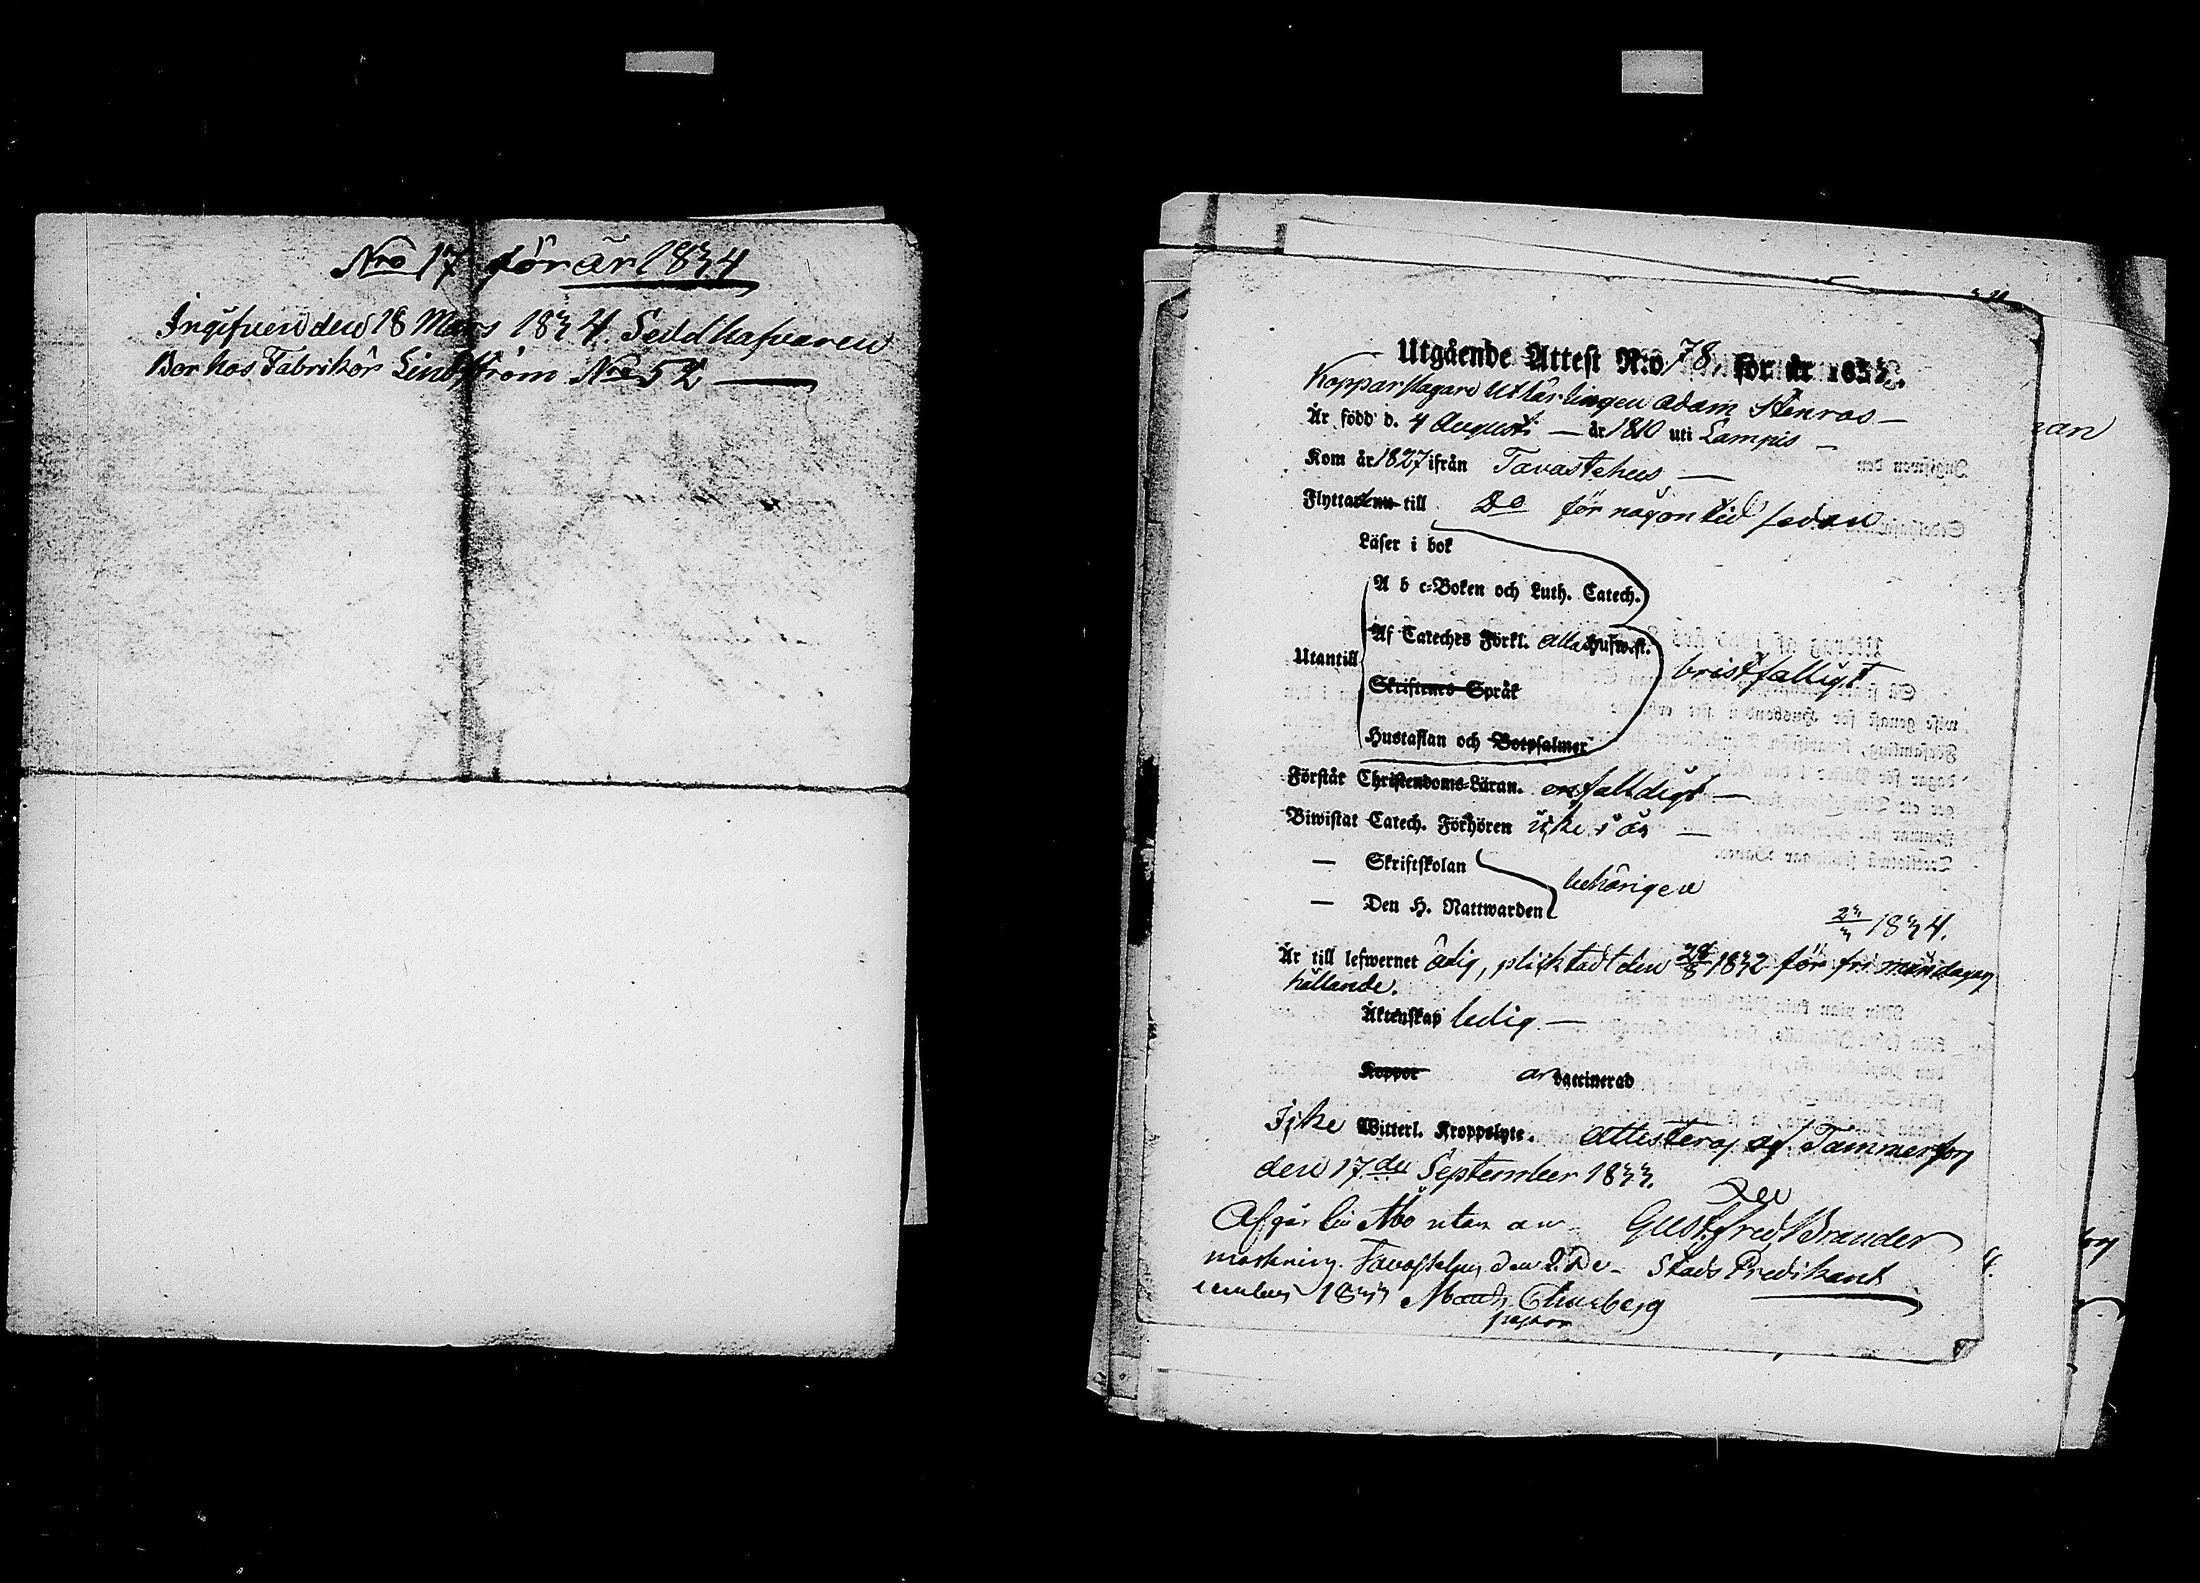 Nro 17 för år 1834
Ingifven den 18 Mars 1834. Seddhafvaren
Bor hos Fabrikör Lindström Nro 52
Utgående Attest N:o 78, för år 1833.
Kopparslagare Utlärlingen Adam Stenros
Är född d. 4 Augusti — år 1810 uti Lampis —
Kom år 1827 ifrån Tavastehus —
Flyttade till Do för någon tid sedan
Läser i bok
A b c-Boken och Luth. Catech.
Af Cateches Förkl. alla Hufwst.
Utantill
bristfälligt
Skriftenes Språk
Hustaflan och Botpsalmer
Förstår Christendoms-Läran. enfalldigt —
Biwistat Catech. Förhören icke i år —
— Skriftskolan
behörigen
— Den H. Nattwarden
1834.
Är till lefwernet ärlig, pliktadt den 28/8 1832 för fri måndagars
hållande.
Äktenskap ledig —
Koppor vaccinerad
Icke Witterl. Kroppslyte. Attesteras af Tammerfors
den 17de September 1833.
Afgår till Åbo utan an-
Gust. Fred. Brander
märkning. Tavastehus den 2. De-
Stads Predikant
cember 1833
pastor